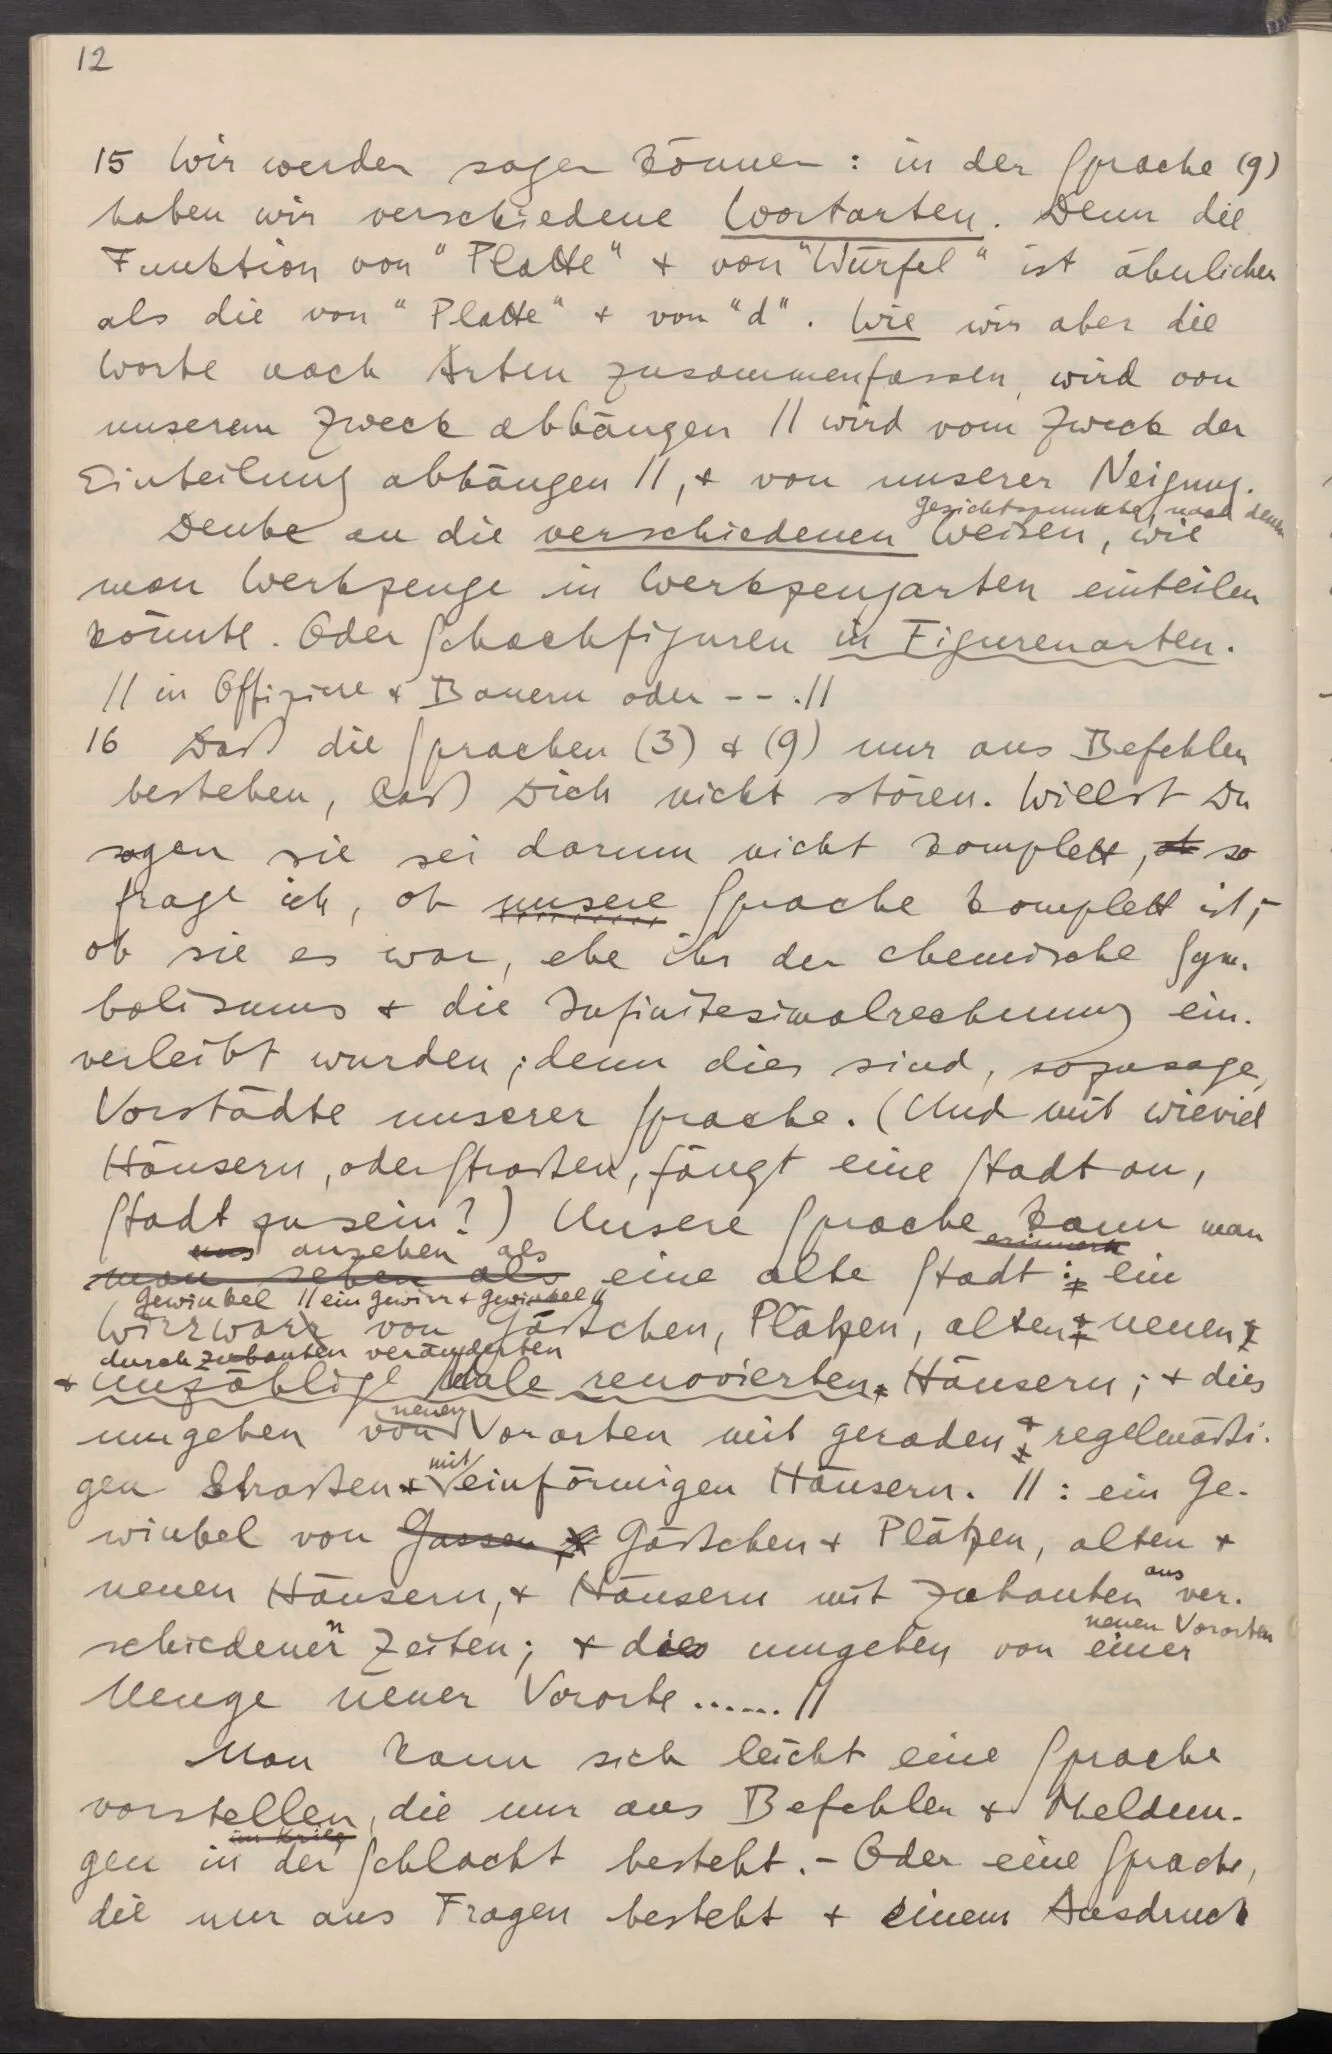 12
15 Wir werden sagen können : in der Sprache (9)
haben wir verschiedene Wortarten. Denn die
Funktion von "Platte" & von "Würfel" ist ähnlicher
als die von "Platte" & von "d". Wie wir aber die
Worte nach Arten zusammenfassen, wird von
unserem Zweck abhängen // wird vom Zweck der
Einteilung abhängen //, & von unserer Neigung.
Gesichtspunkte, nach denen
Denke an die verschiedenen Weisen, wie
man Werkzeuge in Werkzeugarten einteilen
könnte. Oder Schachfiguren in Figurenarten.
// in Offiziere & Bauern oder - - .//
16 Daß die Sprachen (3) & (9) nur aus Befehlen
bestehen, laß Dich nicht stören. Willst Du
sagen sie sei darum nicht komplett, so
frage ich, ob unsere Sprache komplett ist, –
ob sie es war, ehe ihr der chemische Sym-
bolismus & die Infinitesimalrechnung ein-
verleibt wurden; denn dies sind, sozusagen,
Vorstädte unserer Sprache. (Und mit wieviel
Häusern, oder Straßen, fängt eine Stadt an,
Stadt zu sein?) Unsere Sprache kann man
uns ansehen als erinnern
man sehen als eine alte Stadt: ein
Gewinkel // ein Gewirr & Gewinkel //
Wirrwarr von Gäßchen, Plätzen, alten & neuen
durch Zubauten veränderten
& unzählige Male renovierten, Häusern; & dies
neuen
umgeben von Vororten mit geraden & regelmäßi-
mit
gen Straßen & einförmigen Häusern. // : ein Ge-
winkel von Gassen & Gäßchen & Plätzen, alten &
neuen Häusern, & Häusern mit Zubauten aus ver-
neuen Vororten
schiedenen Zeiten; & dies umgeben von einer
Menge neuer Vororte ...... //
Man kann sich leicht eine Sprache
vorstellen, die nur aus Befehlen & Meldun-
im Krieg
gen in der Schlacht besteht. – Oder eine Sprache,
die nur aus Fragen besteht & einem Ausdruck